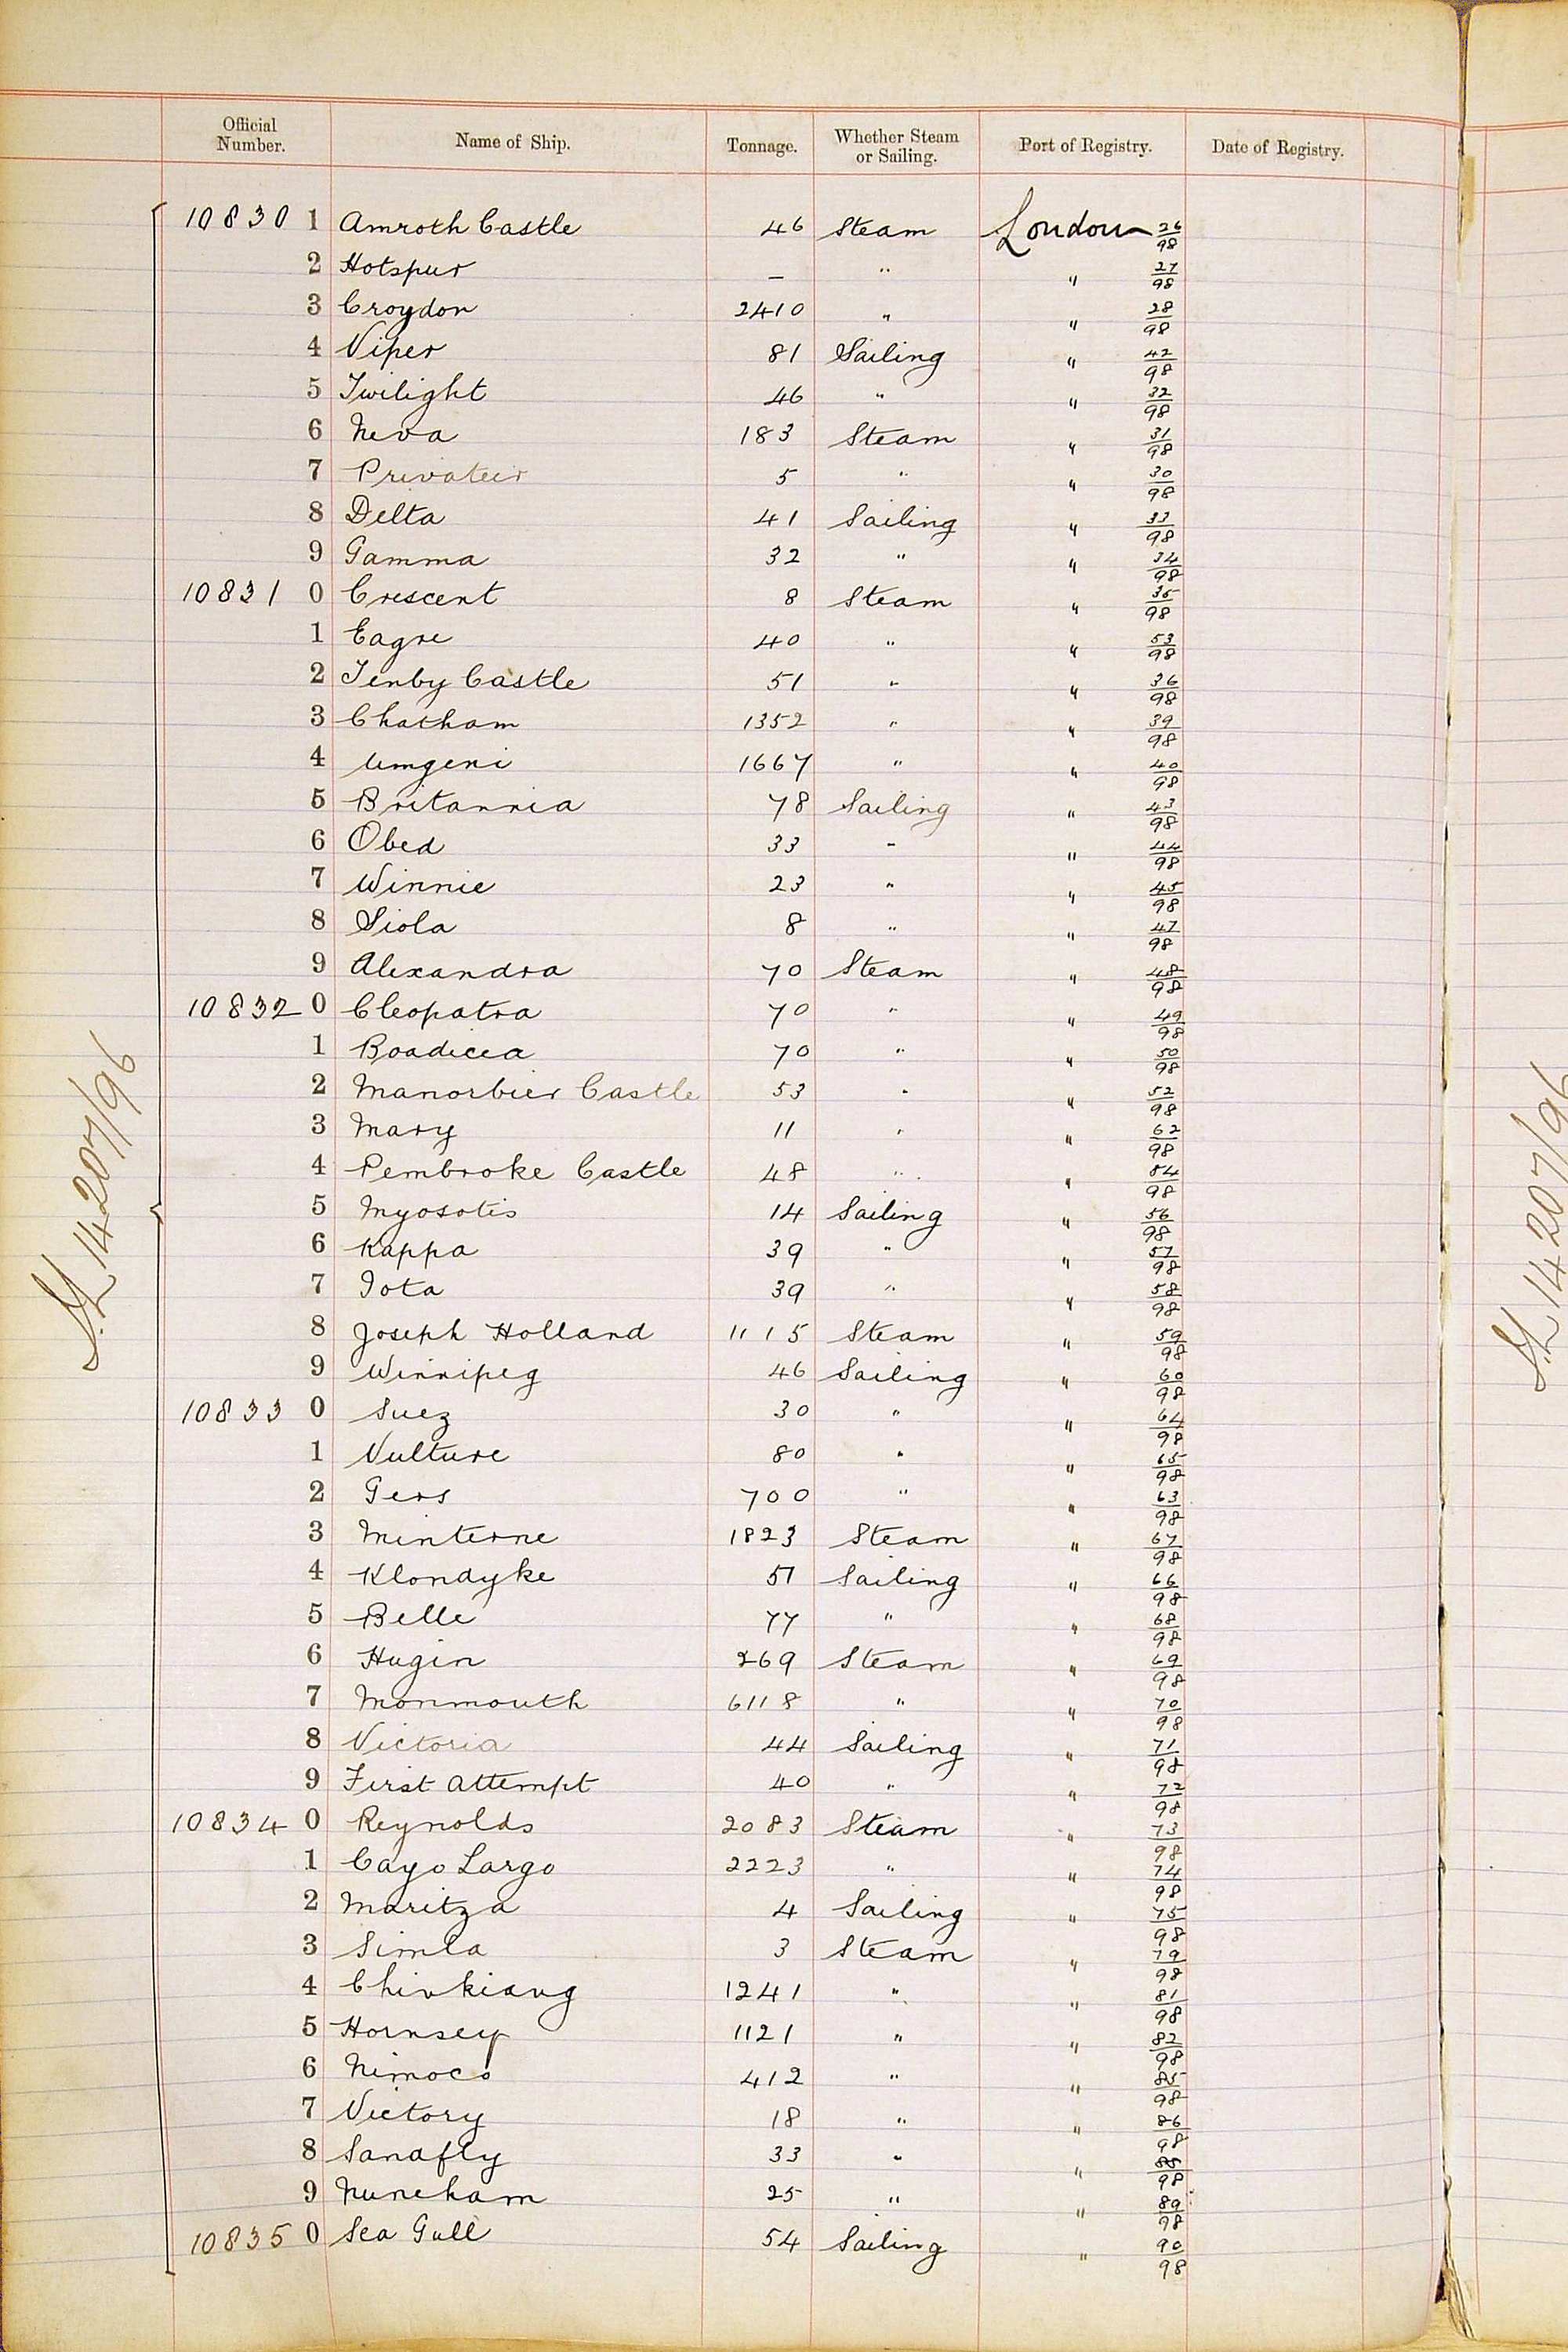 Official Number. Name of Ship. Tonnage. Whether Steam or Sailing. Port of Registry. Date of Registry.
10830 1 Amroth Castle 46 Steam London 26/98
2 Hotspur – " " 27/98
3 Croydon 2410 " " 28/98
4 Viper 81 Sailing " 42/98
5 Twilight 46 " " 32/98
6 Neva 183 Steam " 31/98
7 Privateer 5 " " 30/98
8 Delta 41 Sailing " 33/98
9 Gamma 32 " " 34/98
10831 0 Crescent 8 Steam " 35/98
1 Eagre 40 " " 53/98
2 Tenby Castle 51 " " 36/98
3 Chatham 1352 " " 39/98
4 Umgeni 1667 " " 40/98
5 Britannia 78 Sailing " 43/98
6 Obed 33 " " 44/98
7 Winnie 23 " " 45/98
8 Siola 8 " " 47/98
9 Alexandra 70 Steam " 48/98
10832 0 Cleopatra 70 " " 49/98
1 Boadicea 70 " " 50/98
2 Manorbier Castle 53 " " 52/98
3 Mary 11 " " 62/98
4 Pembroke Castle 48 " " 54/98
5 Myosotis 14 Sailing " 56/98
6 Kappa 39 " " 57/98
7 Iota 39 " " 58/98
8 Joseph Holland 1115 Steam " 59/98
9 Winnipeg 46 Sailing " 60/98
10833 0 Suez 30 " " 64/98
1 Vulture 80 " " 65/98
2 Gers 700 " " 63/98
3 Minterne 1823 Steam " 67/98
4 Klondyke 51 Sailing " 66/98
5 Belle 77 " " 68/98
6 Hugin 269 Steam " 69/98
7 Monmouth 6118 " " 70/98
8 Victoria 44 Sailing " 71/98
9 First Attempt 40 " " 72/98
10834 0 Reynolds 2083 Steam " 73/98
1 Cayo Largo 2223 " " 74/98
2 Maritza 4 Sailing " 75/98
3 Simla 3 Steam " 79/98
4 Chinkiang 1241 " " 81/98
5 Hornsey 1121 " " 82/98
6 Nimoco 412 " " 85/98
7 Victory 18 " " 86/98
8 Sandfly 33 " " 88/98
9 Nuneham 25 " " 89/98
10835 0 Sea Gull 54 Sailing " 90/98
14207/96
14207/96